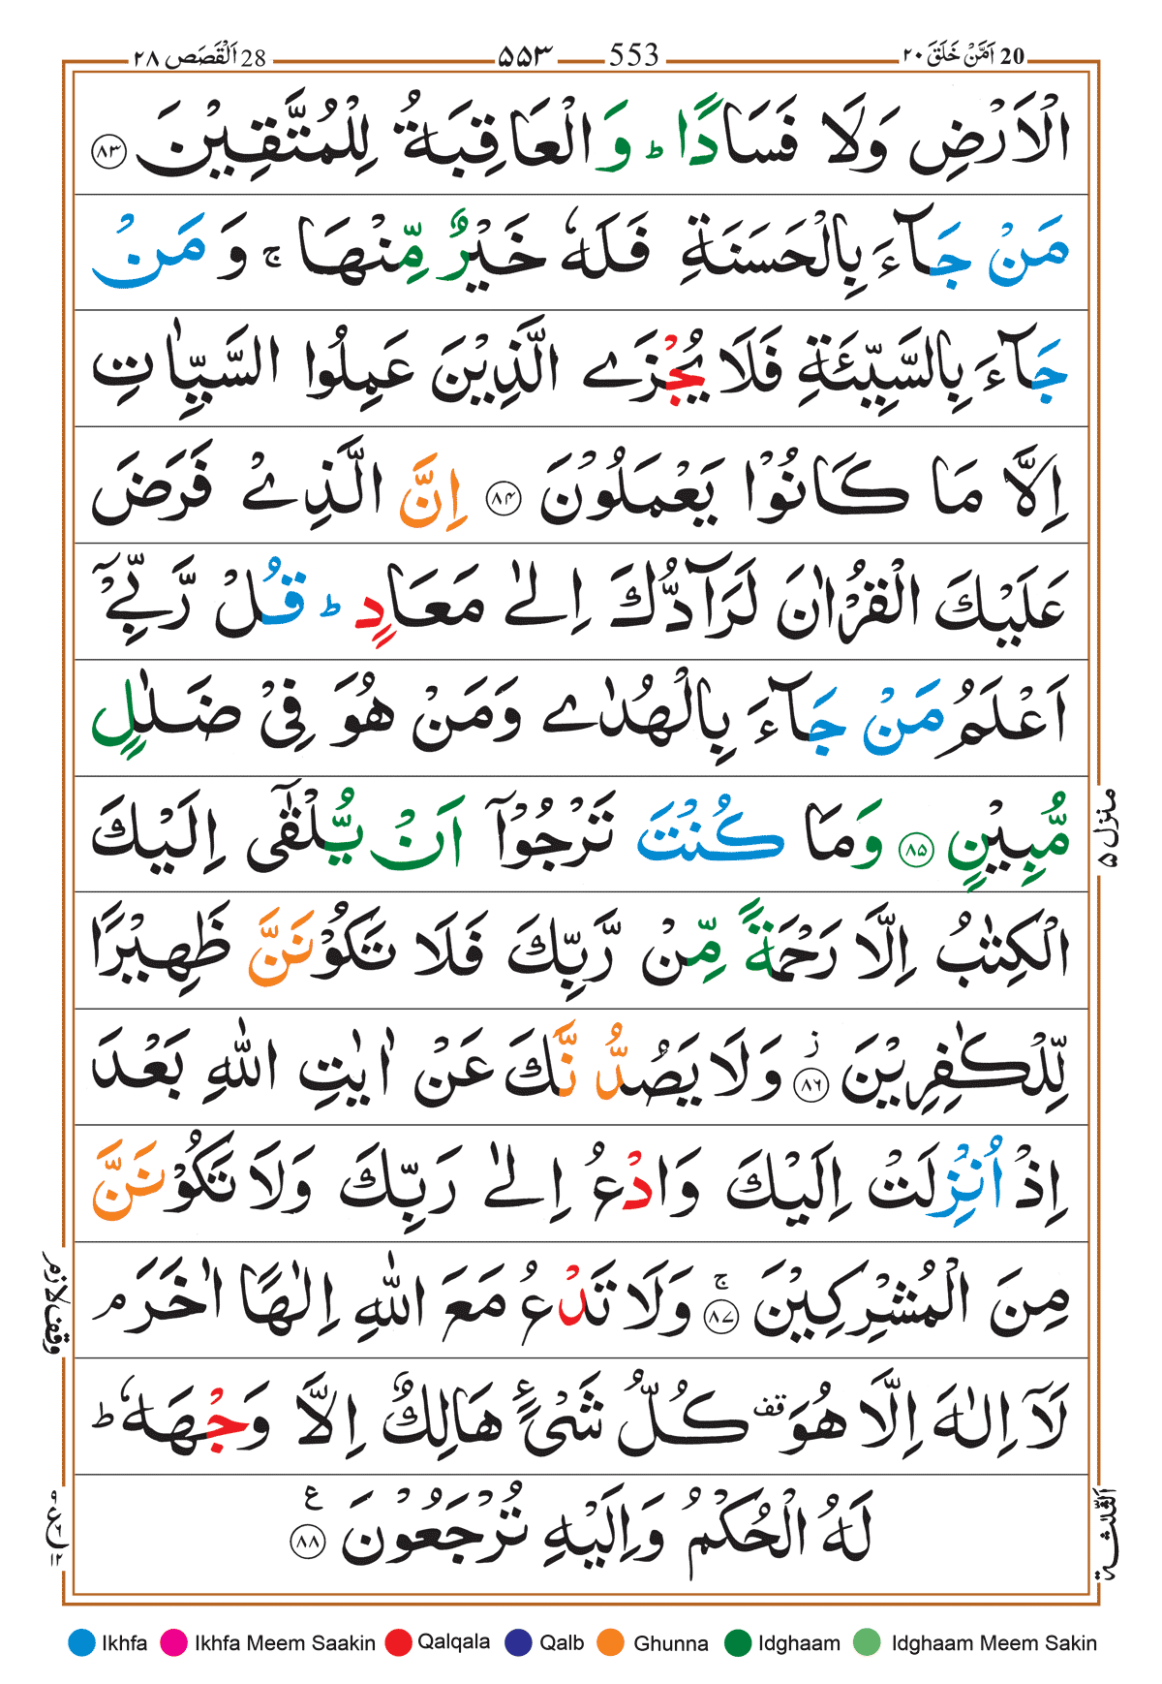 اَلْقَصَص ٢٨ 28
553 —— ۵۵۳
20 اَمَّنْ خَلَقَ ٢٠
الْاَرْضِ وَلَا فَسَادًا ؕ وَالْعَاقِبَةُ لِلْمُتَّقِيْنَ ﴿۸۳﴾
مَنْ جَآءَ بِالْحَسَنَةِ فَلَهٗ خَيْرٌ مِّنْهَا ۚ وَ مَنْ
جَآءَ بِالسَّيِّئَةِ فَلَا يُجْزَى الَّذِيْنَ عَمِلُوا السَّيِّاٰتِ
اِلَّا مَا كَانُوْا يَعْمَلُوْنَ ﴿۸۴﴾ اِنَّ الَّذِىْ فَرَضَ
عَلَيْكَ الْقُرْاٰنَ لَرَآدُّكَ اِلٰى مَعَادٍ ؕ قُلْ رَّبِّىْۤ
اَعْلَمُ مَنْ جَآءَ بِالْهُدٰى وَمَنْ هُوَ فِىْ ضَلٰلٍ
مُّبِيْنٍ ﴿۸۵﴾ وَمَا كُنْتَ تَرْجُوْۤا اَنْ يُّلْقٰٓى اِلَيْكَ
الْكِتٰبُ اِلَّا رَحْمَةً مِّنْ رَّبِّكَ فَلَا تَكُوْنَنَّ ظَهِيْرًا
لِّلْكٰفِرِيْنَ ۫ ﴿۸۶﴾ وَلَا يَصُدُّنَّكَ عَنْ اٰيٰتِ اللّٰهِ بَعْدَ
اِذْ اُنْزِلَتْ اِلَيْكَ وَادْعُ اِلٰى رَبِّكَ وَلَا تَكُوْنَنَّ
مِنَ الْمُشْرِكِيْنَ ۚ ﴿۸۷﴾ وَلَا تَدْعُ مَعَ اللّٰهِ اِلٰهًا اٰخَرَ ۘ
لَاۤ اِلٰهَ اِلَّا هُوَ قف كُلُّ شَىْءٍ هَالِكٌ اِلَّا وَجْهَهٗ ؕ
لَهُ الْحُكْمُ وَاِلَيْهِ تُرْجَعُوْنَ ﴿۸۸﴾ ع
منزل ۵
وقف لازم
الثلثة
Ikhfa Ikhfa Meem Saakin Qalqala Qalb Ghunna Idghaam Idghaam Meem Sakin